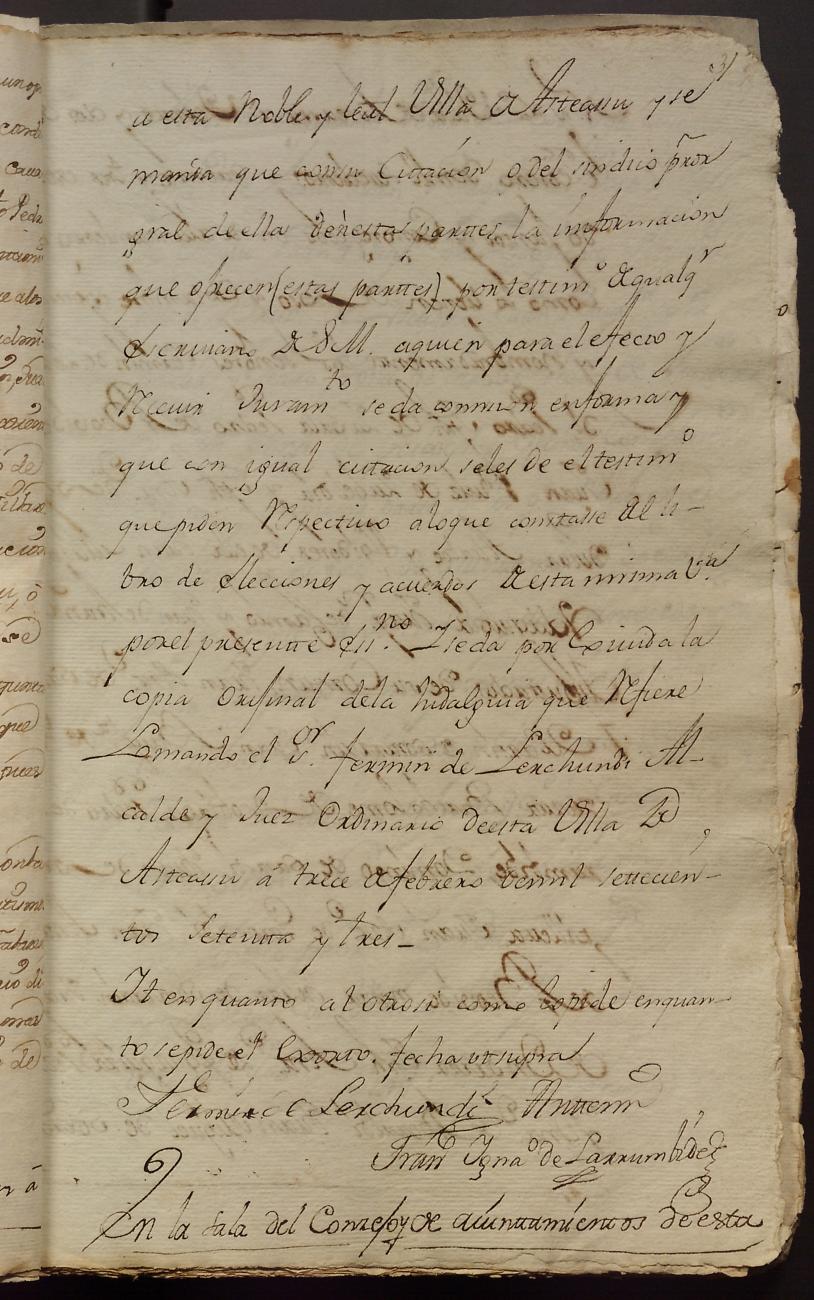 a esta Noble y leal Villa de Asteasu y se
manda que con Cittacion del sindico Pror
gral de ella dèn estas partes la imformacion
que ofrecen (estas parttes) por testimo. de qualqr
Escrivano de S.M. aquien para el efecto y
Recivir Juramto se da comision en forma y
que con igual cittacion seles de el testimo
que piden Respectivo alo que constasse del li-
bro de Elecciones y acuerdos de esta misma Va.
por el presentte Essno. Y se da por Exivida la
copia Orijinal dela hidalguia que Refiere
Lo mando el Sor. fermin de Lerchundi Al-
calde y Juez Ordinario de esta Villa de
Asteasu á trece de febrero de mil settecien-
tos Setenta y tres-
It en quanto al otrosi como lo pide en quan-
to se pide el Exorto. fecha ut supra
Fermin de Lerchundi Antte mi
Fran Igno de Larrumbide
En la Sala del Concejo y de aiuntamientos de esta